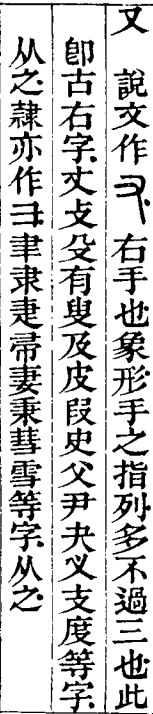 又　說文作　右手也象形手之指列多不過三也此
卽古右字丈攴殳有叟及皮叚史父尹夬义支度等字
从之隸亦作彐聿隶疌帚妻秉彗雪等字从之